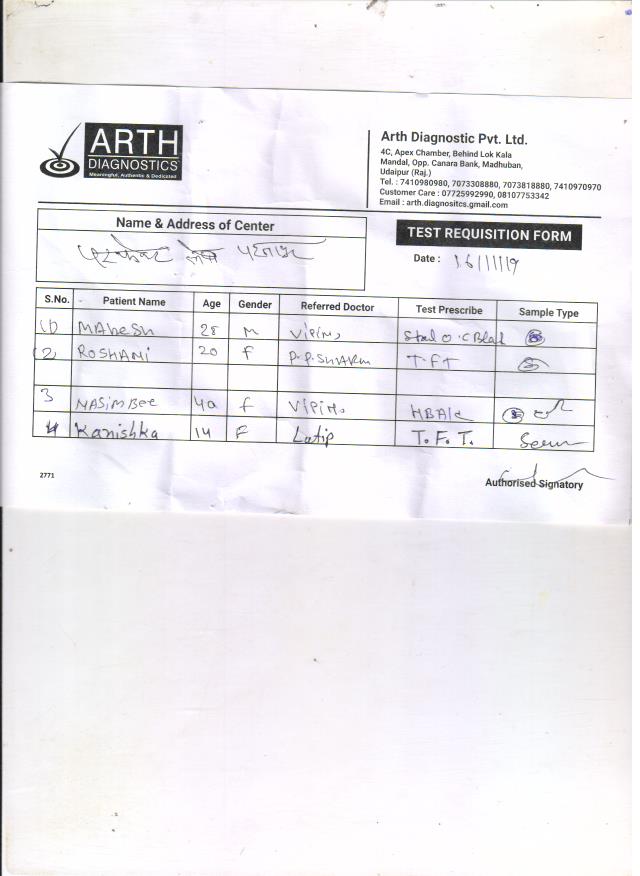 ARTH
DIAGNOSTICS
Meaningful, Authentic & Dedicated
Arth Diagnostic Pvt. Ltd.
4C, Apex Chamber, Behind Lok Kala
Mandal, Opp. Canara Bank, Madhuban,
Udaipur (Raj.)
Tel. : 7410980980, 7073308880, 7073818880, 7410970970
Customer Care : 07725992990, 08107753342
Email : arth.diagnositcs.gmail.com
Name & Address of Center
TEST REQUISITION FORM
Date : 16/11/19
S.No. Patient Name Age Gender Referred Doctor Test Prescribe Sample Type
(1) MAhesh 28 M ViPiN
(2) ROSHANI 20 f P.P. SHARM T.F.T
3 NASIM Bee 40 f ViPiN. HBA1c
4 Kanishka 14 F Latip T. F. T.
2771
Authorised Signatory